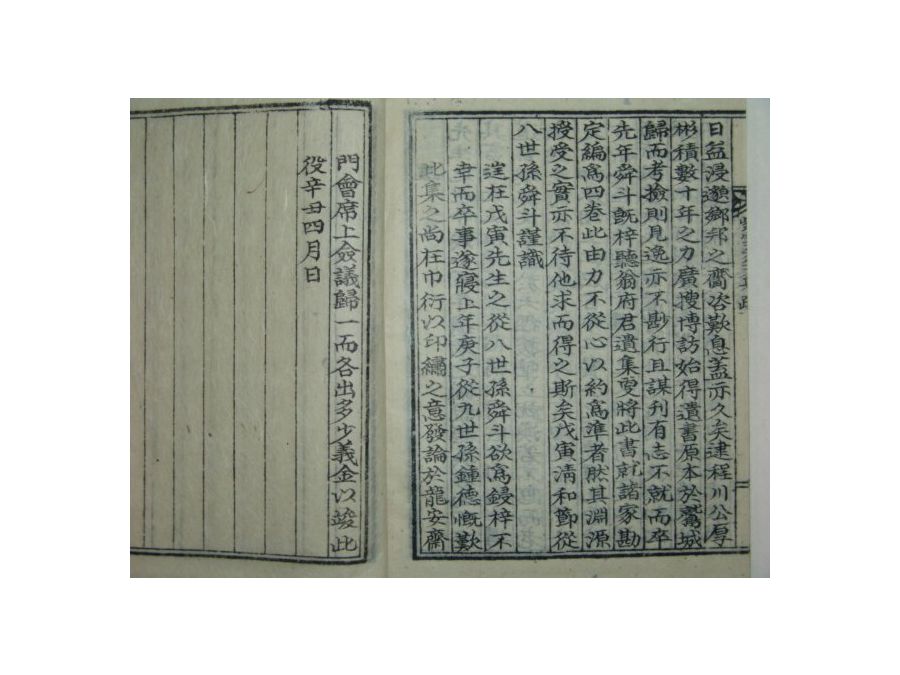 日益浸邈鄕邦之齎咨歎息盖亦久矣逮程川公厚
彬積數十年之力廣搜博訪始得遺書原本於鷲城
歸而考撿則見逸亦不尠行且謀刋有志不就而卒
先年舜斗旣梓聽翁府君遺集更將此書就諸家勘
定編爲四卷此由力不從心以約爲準者然其淵源
授受之實亦不待他求而得之斯矣戊寅淸和節從
八世孫舜斗謹識
逞在戊寅先生之從八世孫舜斗欲爲鋟梓不
幸而卒事遂寢上年庚子從九世孫鍾德慨歎
此集之尚在巾衍以印繡之意發論於龍安齋
門會席上僉議歸一而各出多少義金以竣此
役辛丑四月日